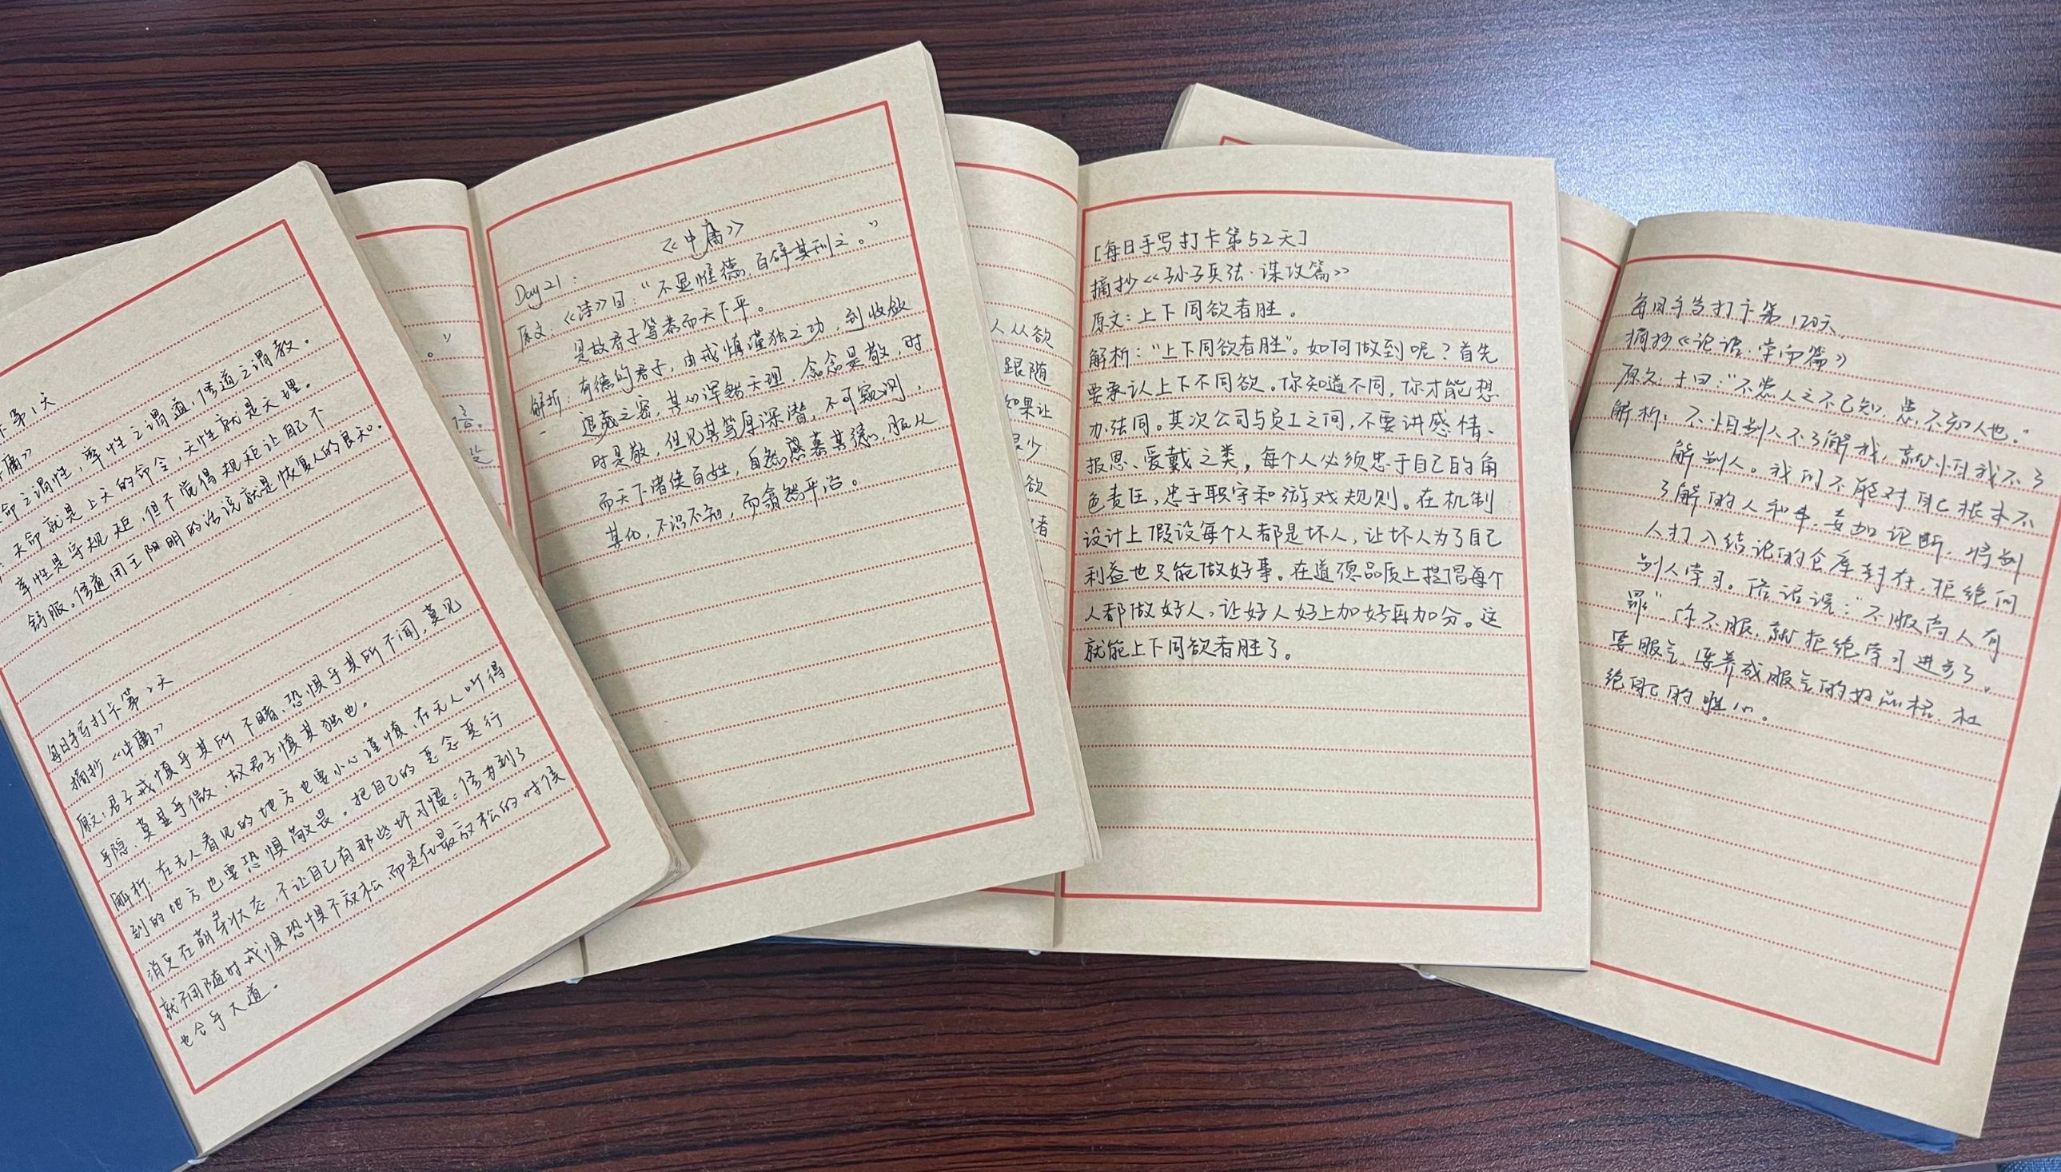 卡第1天
庸》
命之谓性，率性之谓道，修道之谓教。
天命就是上天的命令，天性就是天理。
率性是守规矩，但不觉得规矩让自己不
舒服。修道用王阳明的话说就是恢复人的良知。
每日手写打卡第2天
摘抄《中庸》
原文：君子戒慎乎其所不睹，恐惧乎其所不闻，莫见
乎隐，莫显乎微，故君子慎其独也。
解析：在无人看见的地方也要小心谨慎，在无人听得
到的地方也要恐惧敬畏。把自己的恶念恶行
消灭在萌芽状态，不让自己有那些坏习惯。修为到了
就不用随时戒惧恐惧不放松，而是在最放松的时候
也合乎大道。
。”
信。
《中庸》
Day 21：
原文：《诗》曰：“不显惟德，百辟其刑之。”
是故君子笃恭而天下平。
解析：有德的君子，由戒慎谨独之功，到收敛
退藏之密，其心浑然天理，念念是敬，时
时是敬，但见其笃厚深潜，不可窥测，
而天下诸侯百姓，自然感慕其德，服从
其化，不识不知，而翕然平治。
人从欲
跟随
如果让
很少
欲
者
[每日手写打卡第52天]
摘抄《孙子兵法·谋攻篇》
原文：上下同欲者胜。
解析：“上下同欲者胜”。如何做到呢？首先
要承认上下不同欲。你知道不同，你才能想
办法同。其次公司与员工之间，不要讲感情、
报恩、爱戴之类，每个人必须忠于自己的角
色责任，忠于职守和游戏规则。在机制
设计上假设每个人都是坏人，让坏人为了自己
利益也只能做好事。在道德品质上提倡每个
人都做好人，让好人好上加好再加分。这
就能上下同欲者胜了。
每日手写打卡第120天
摘抄《论语·学而篇》
原文：子曰：“不患人之不己知，患不知人也。”
解析：不怕别人不了解我，就怕我不了
解别人。我们不能对自己根本不
了解的人和事，妄加论断，将别
人打入结论的仓库封存，拒绝向
别人学习。俗话说：“不服高人有
罪”你不服，就拒绝学习进步了。
要服气，培养成服气的好品格，杜
绝自己的胜心。